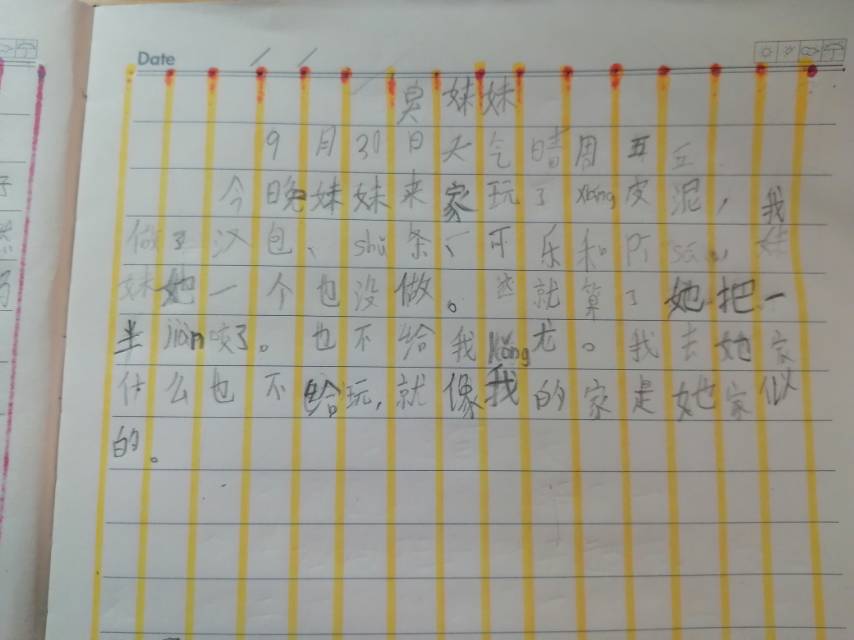 Date
臭妹妹
9月30日天气晴周五
今晚妹妹来家玩了xiàng皮泥，我
做了汉包、shǔ条、可乐和pī sà，妹
妹她一个也没做。这就算了她把一
半jiǎn咬了。也不给我
。我去她家
什么也不给玩，就像我的家是她家似
的。